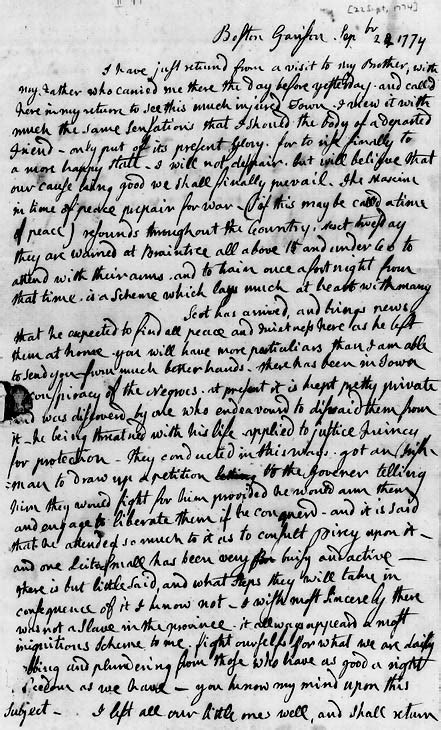 [22 Sept. 1774]
Boston Garison Sepbr 22 1774
I have just returnd from a visit to my Brother, with
my Father who carried me there the day before yesterday, and called
here in my return to see this much injured Town. I view it with
much the same sensations that I should the body of a departed
Friend - only put of its present Glory, for to rise finally to
a more happy State - I will not despair, but will believe that
our cause being good we shall finally prevail. The Maxim
in time of peace prepair for war - (if this may be calld a time
of peace) resounds throughout the Country. Next tuesday
they are warned at Braintree all above 15 and under 60 to
attend with their arms, and to train once a fortnight from
that time, is a Scheme which lays much at heart with many
Scot has arrived, and brings news
that he expected to find all peace and Quietness here as he left
them at home. you will have more particuliars than I am able
to send you from much better hands. there has been in Town
conspiracy of the Negroes. at present it is kept pretty private
and was discoverd by one who endeavourd to diswaid them from
it - he being threatned with his life, applied to justice Quincy
for protection - They conducted in this way - got an Irish-
-man to draw up a petition to the Govener telling
him they would fight for him provided he would arm them
and engage to liberate them if he conquerd - and it is said
that he attended so much to it as to consult Pircy upon it -
and one Leit Small has been very busy and active -
there is but little said, and what steps they will take in
consequence of it I know not - I wish most sincerely there
was not a Slave in the province. it allways appeard a most
iniquitious Scheme to me. fight ourselfs for what we are daily
robbing and plundering from those who have as good a right
freedom as we have - you know my mind upon this
Subject - I left all our little ones well, and shall return